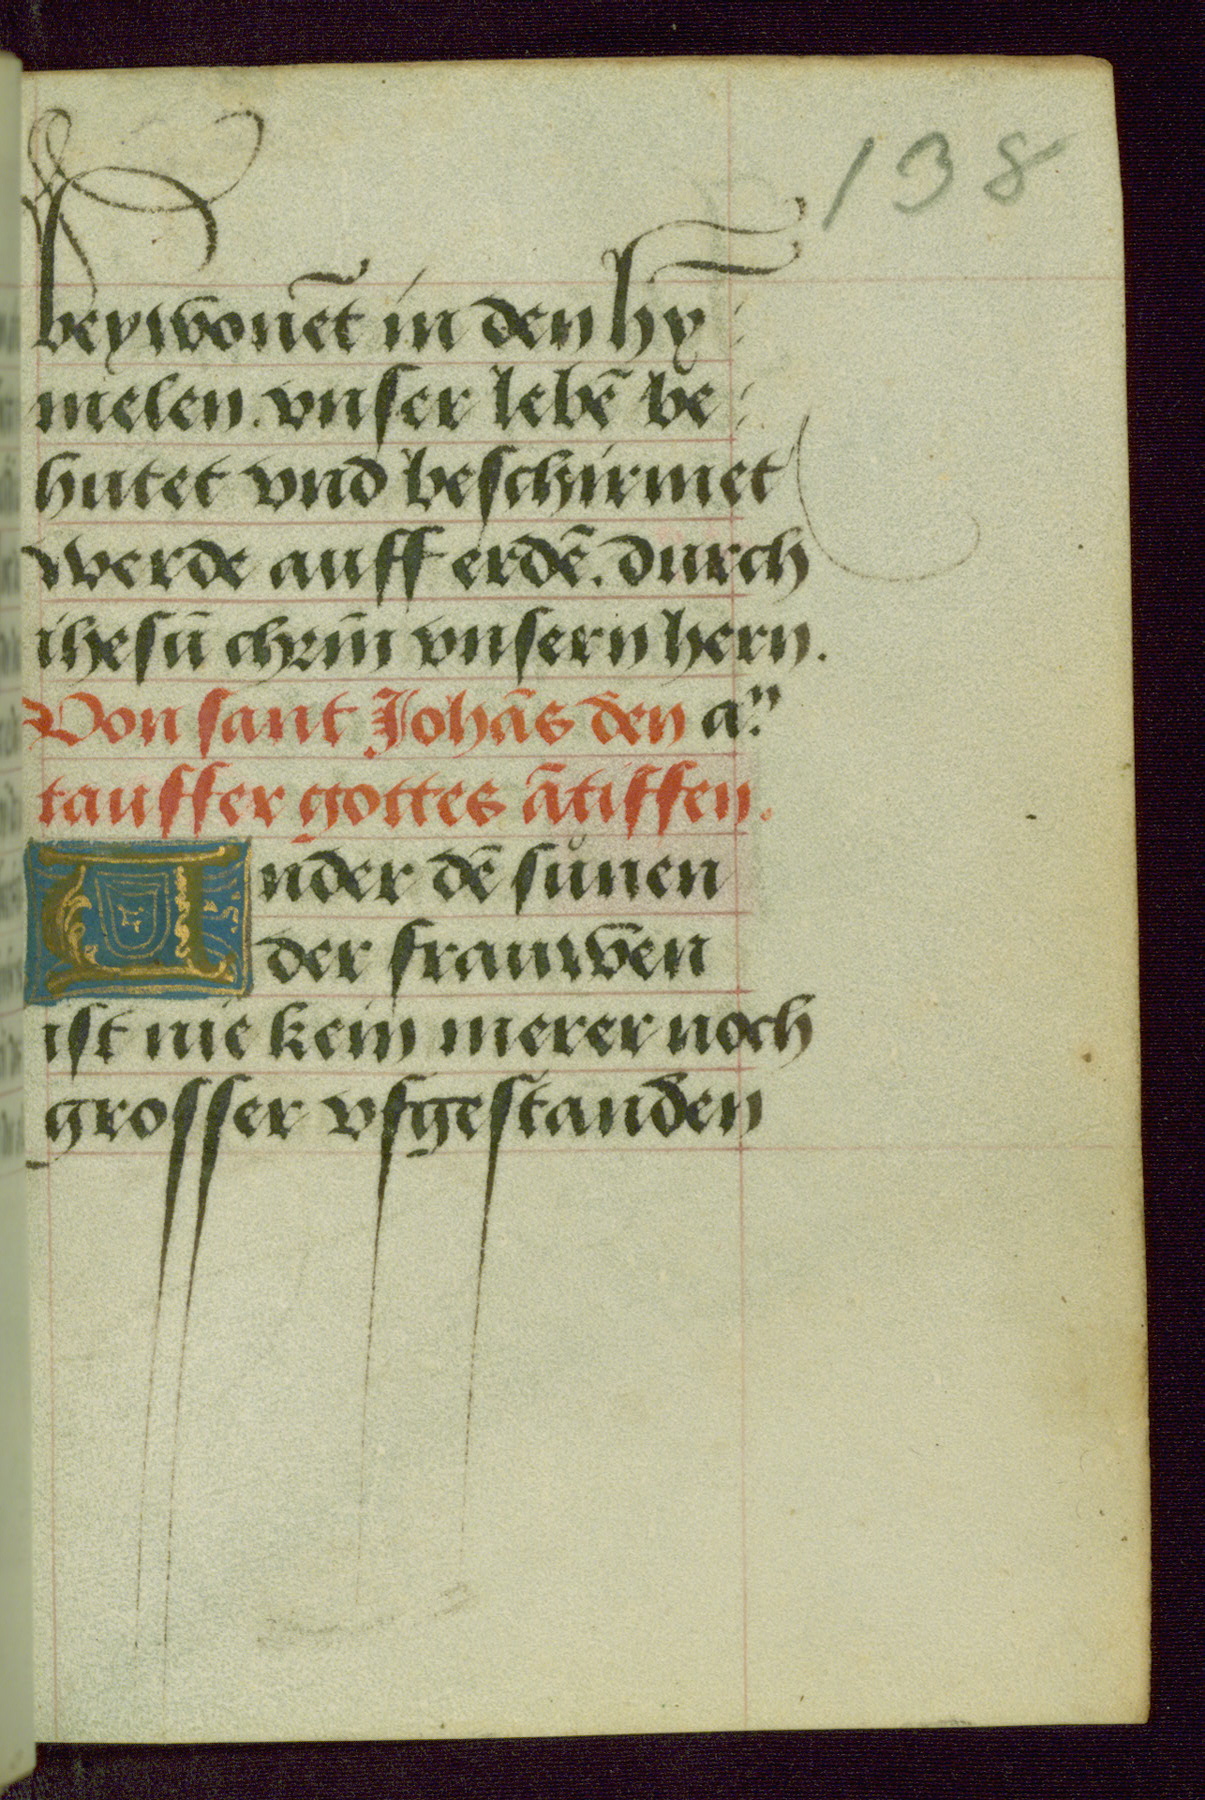 138
beywonēt in den hȳ
melen. vnser lebē be
hutet vnd beschirmet
werde auff erdē. durch
ihesū chrm̄ vnsern hern.
Von sant Johās den a"
tauffer gottes ātiffen.
Under dē sůnen
der frauwen
ist nie kein merer noch
grosser vfgestanden